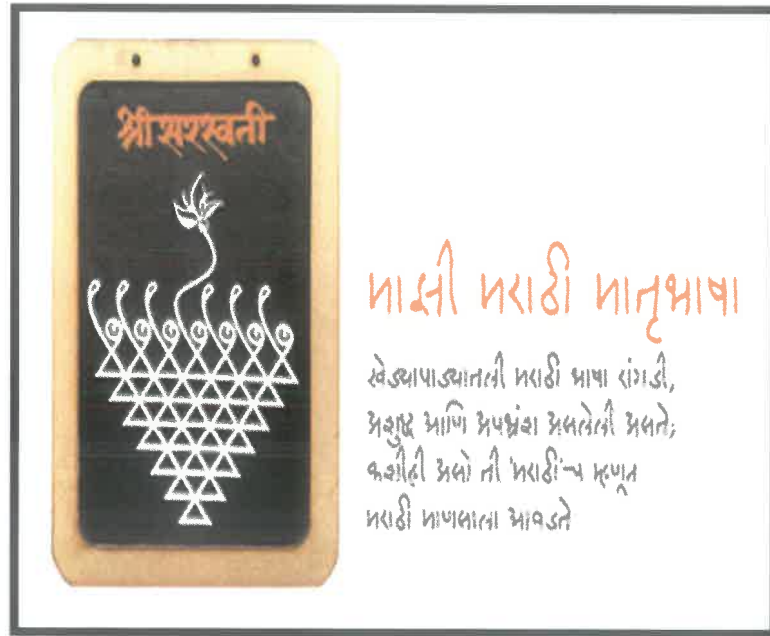 श्री सरस्वती
माझी मराठी मातृभाषा
खेड्यापाड्यातली मराठी भाषा रांगडी,
अशुद्ध आणि अपभ्रंश असलेली असते;
कशीही असो ती 'मराठी'च म्हणून
मराठी माणसाला आवडते